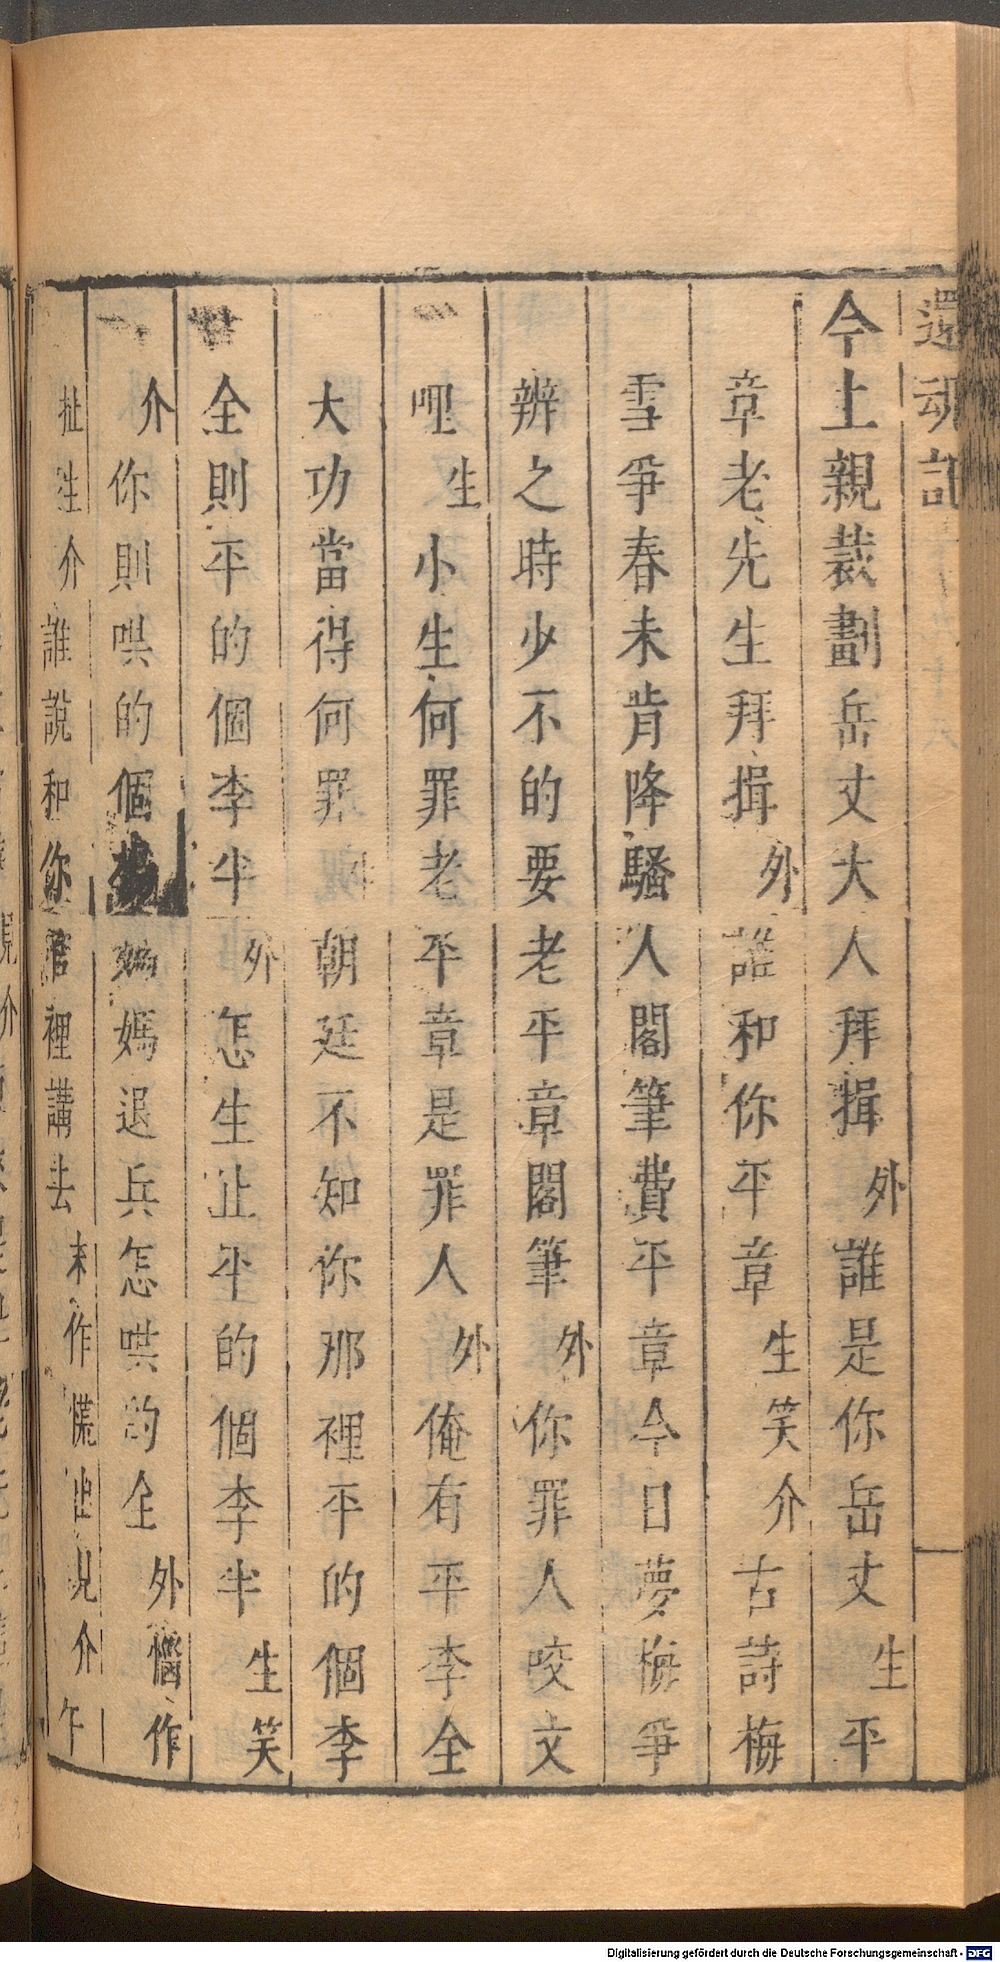 還魂記
今上親裁劃岳丈大人拜揖外誰是你岳丈生平
章老先生拜揖外誰和你平章生笑介古詩梅
雪爭春未肯降騷人閣筆費平章今日夢梅爭
辨之時少不的要老平章閣筆外你罪人咬文
哩生小生何罪老平章是罪人外俺有平李全
大功當得何罪朝廷不知你那裡平的個李
全則平的個李半外怎生止平的個李半生笑
介你則哄的個媽媽退兵怎哄的全外惱作
扯生介誰說和你官裡講去末作慌出見介午
Digitalisierung gefördert durch die Deutsche Forschungsgemeinschaft - DFG